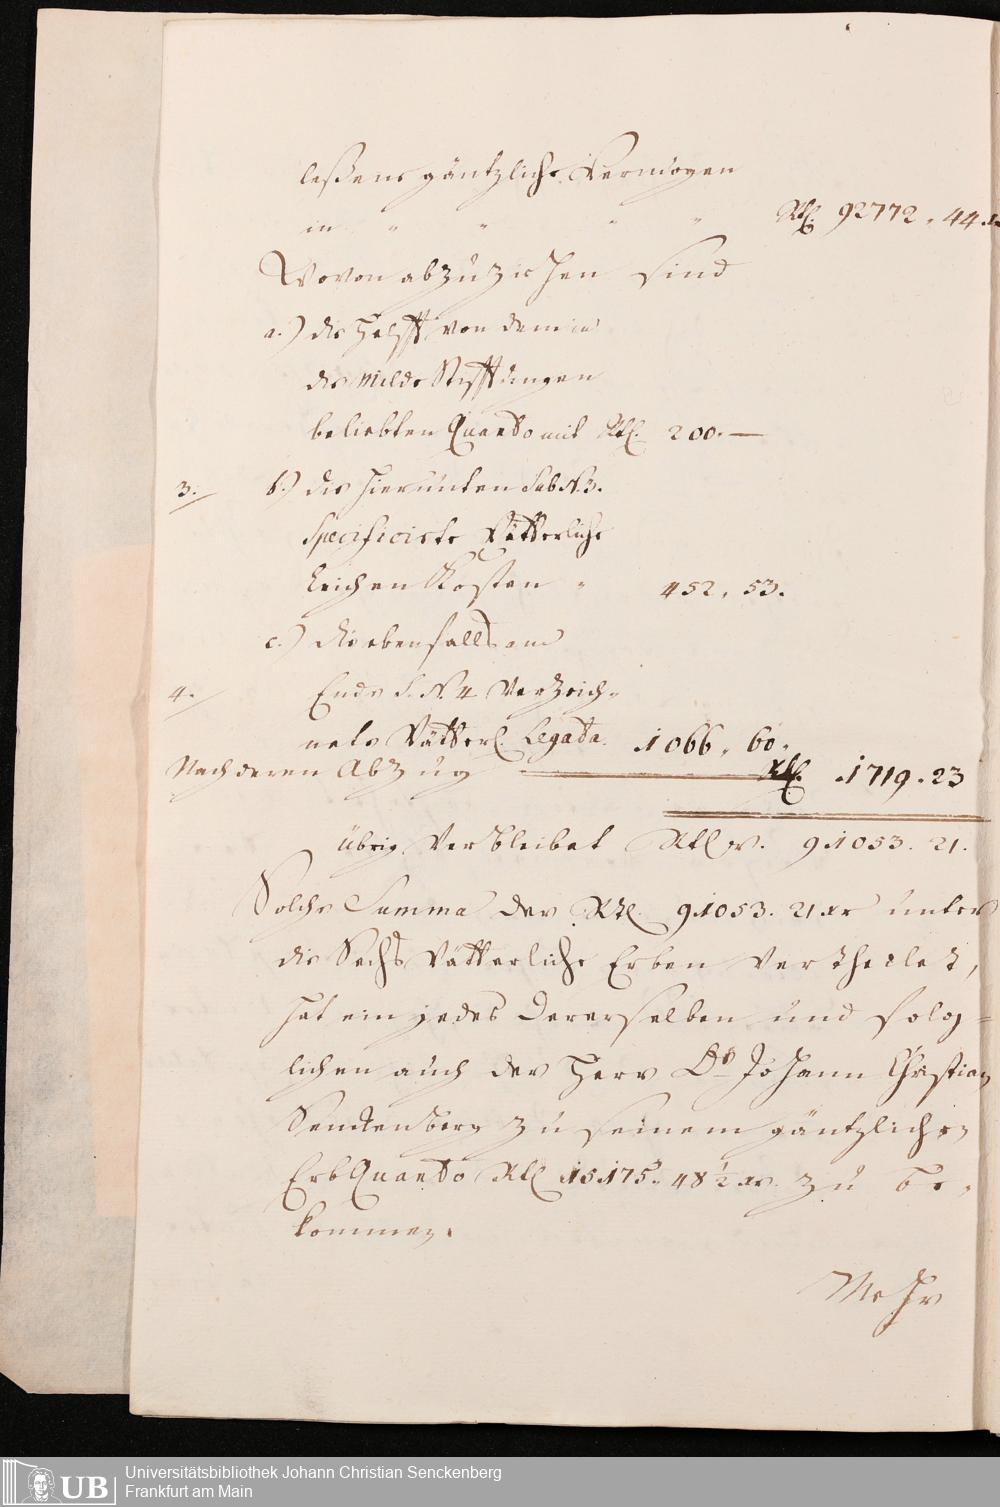 leßene gäntzliche Vermögen
in " " " " Rthl. 92772. 44.
Wovon abzuziehen sind
a.) die Helfft von dem in
die Milde Stifftungen
beliebten Quanto mit Rthl. 200.—
3. b.) die hierunten Sub N. 3.
Specificirte Vätterliche
Leichen Kosten " 452. 53.
c.) die ebenfalls am
4. Ende S. N. 4 Verzeich-
nete Vätterl. Legata. 1066. 60.
Nach deren Abzug Rthl. 1719. 23
übrig Verbleibet Rthlr. 91053. 21.
Solche Summa der Rthl. 91053. 21 xr unter
die Sechs Vätterliche Erben Vertheilet,
hat ein jedes Dererselben und folg=
lichen auch der Herr Dr. Johann Christian
Senckenberg zu seinem gäntzlichen
Erb Quanto Rthl 15175. 48½ xr. zu be-
kommen.
Mehr
UB
Universitätsbibliothek Johann Christian Senckenberg
Frankfurt am Main